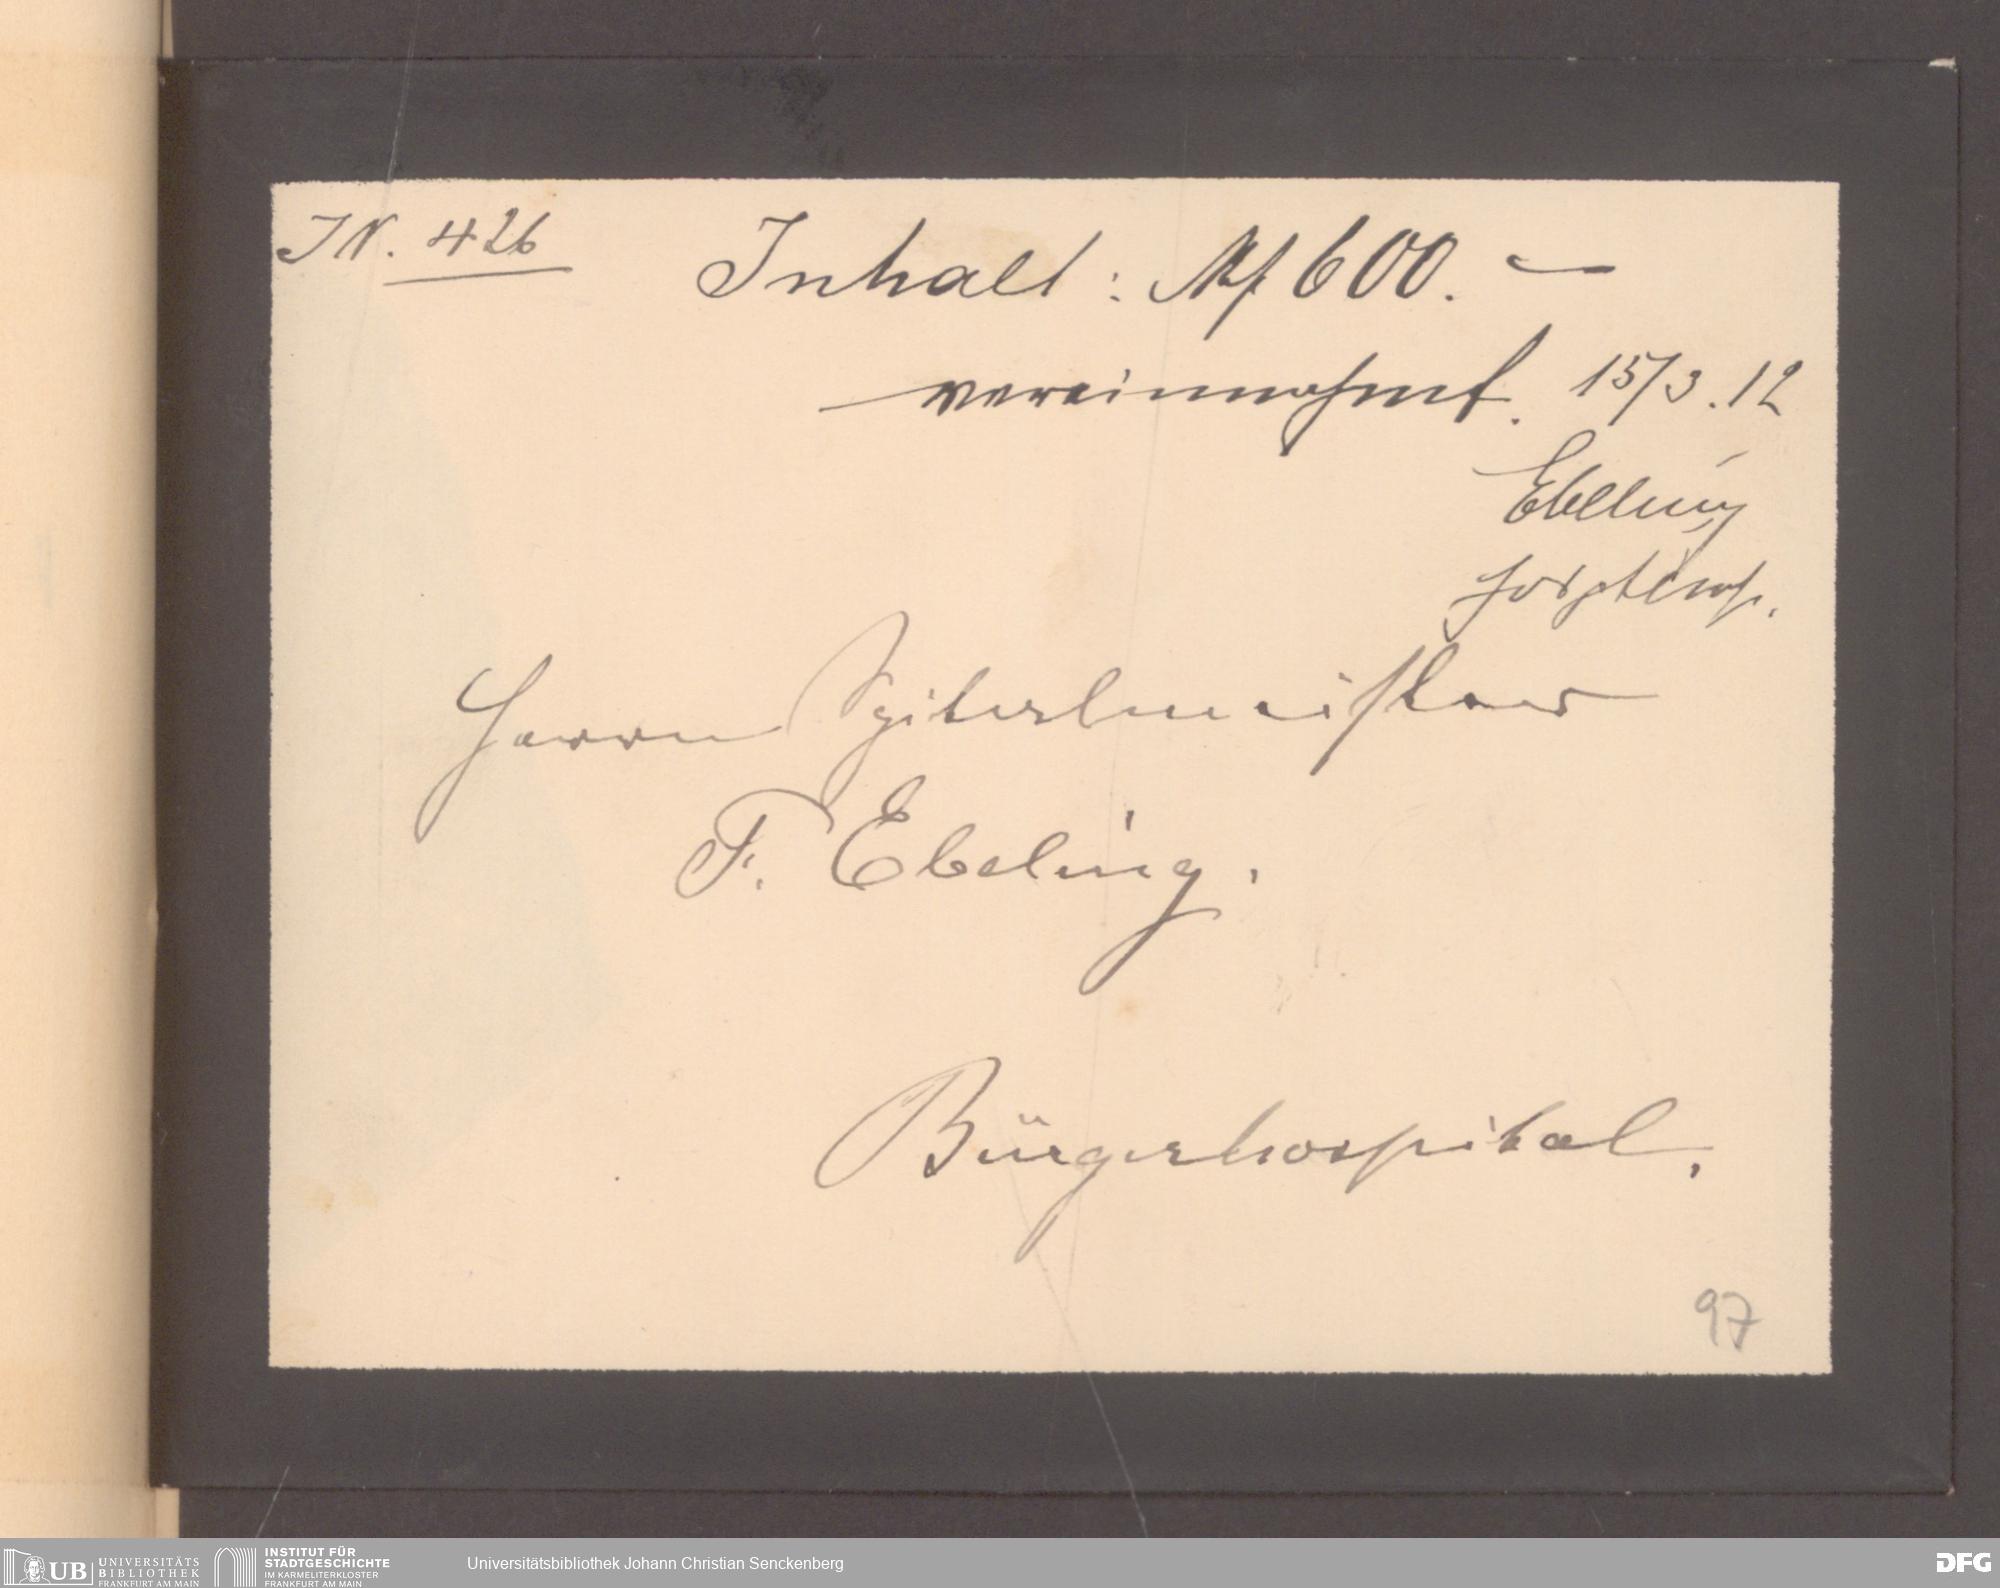 JN. 426
Inhalt: Mk 600. —
vereinnahmt. 15/3.12
Ebeling
Hosptlmstr.
Herrn Spitalmeister
F. Ebeling.
Bürgerhospital.
97
UB UNIVERSITÄTS
BIBLIOTHEK
FRANKFURT AM MAIN
INSTITUT FÜR
STADTGESCHICHTE
IM KARMELITERKLOSTER
FRANKFURT AM MAIN
Universitätsbibliothek Johann Christian Senckenberg
DFG